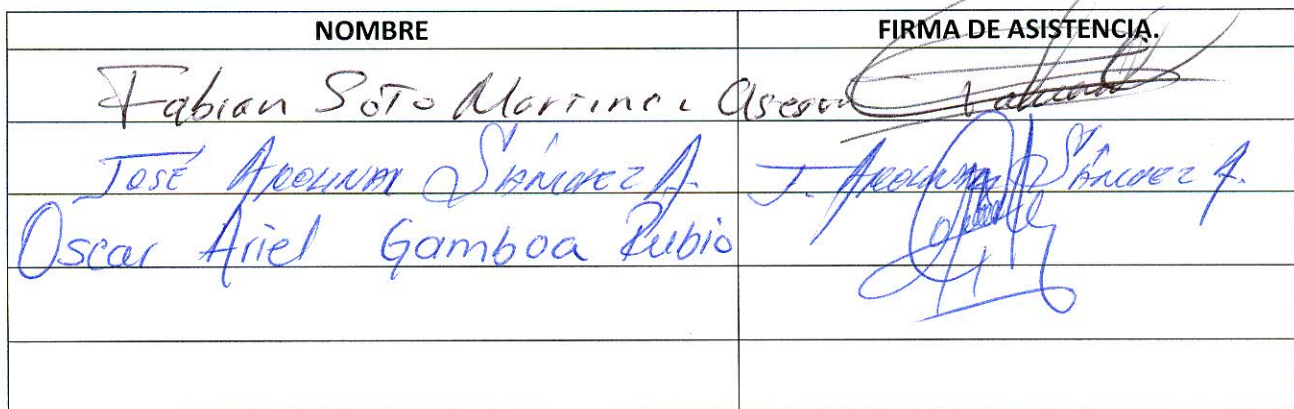 NOMBRE FIRMA DE ASISTENCIA.
Fabian Soto Martinez Asesor
José Apolinar Sánchez A. J. Apolinar Sánchez A.
Oscar Ariel Gamboa Rubio